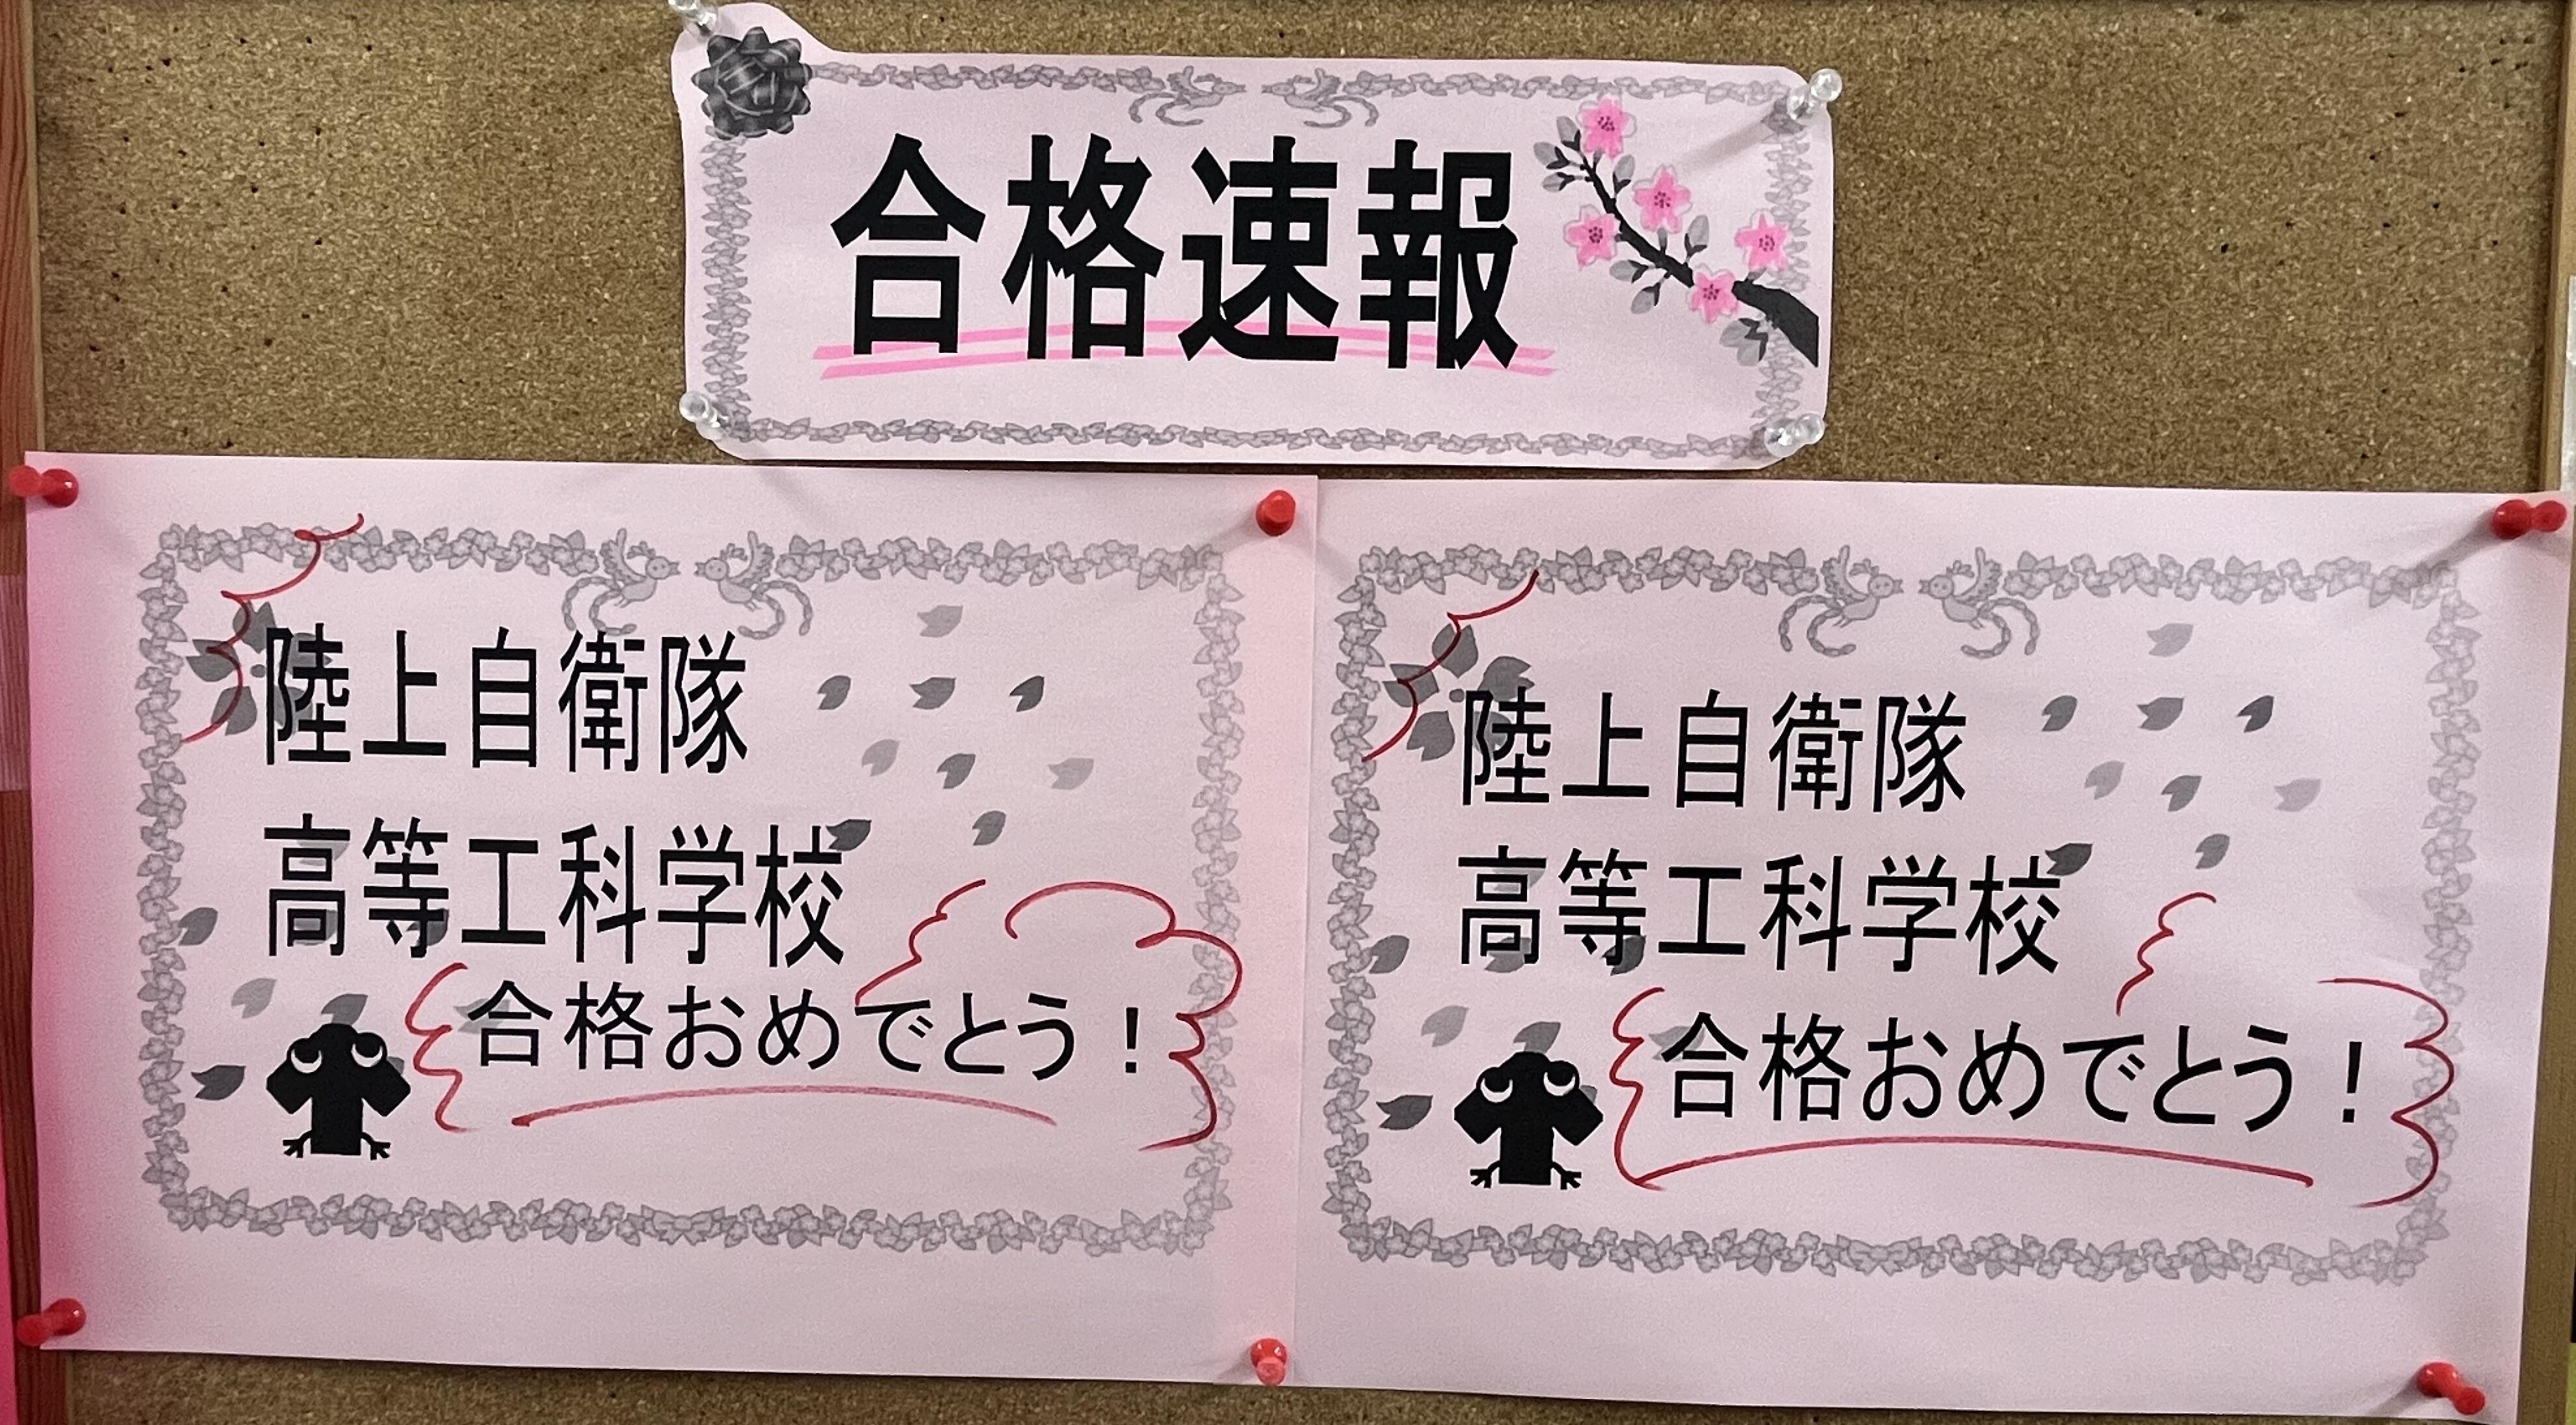 合格速報
陸上自衛隊
高等工科学校
合格おめでとう！
陸上自衛隊
高等工科学校
合格おめでとう！